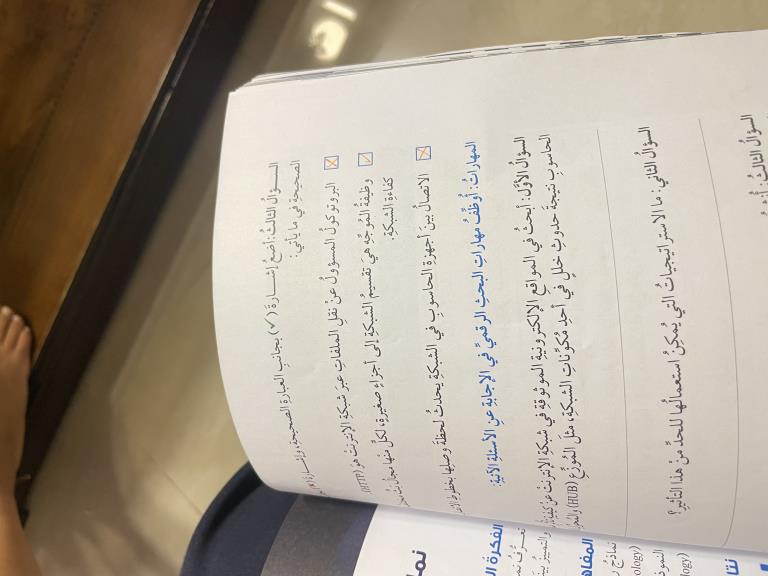 السؤال الثالث: أضع إشارة (✓) بجانب العبارة الصحيحة، وإشارة (×)
الصحيحة في ما يأتي:
البروتوكول المسؤول عن نقل الملفات عبر شبكة الإنترنت هو (HTTP).
وظيفة الموجه هي تقسيم الشبكة إلى أجزاء صغيرة، لكل منها مجال
كفاءة الشبكة.
الاتصال بين أجهزة الحاسوب في الشبكة يحدث لحظة وصلها بخطوط
المهارات: أوظف مهارات البحث الرقمي في الإجابة عن الأسئلة الآتية:
السؤال الأول: أبحث في المواقع الإلكترونية الموثوقة في شبكة الإنترنت عن
الحاسوب نتيجة حدوث خلل في أحد مكونات الشبكة، مثل الموزع (HUB)
السؤال الثاني: ما الاستراتيجيات التي يمكن استعمالها للحد من هذا التأثير؟
السؤال الثالث:
الفكرة
تعرف
والتمييز
المفاه
نماذج
ology)
النموذ
ogy)
نتا